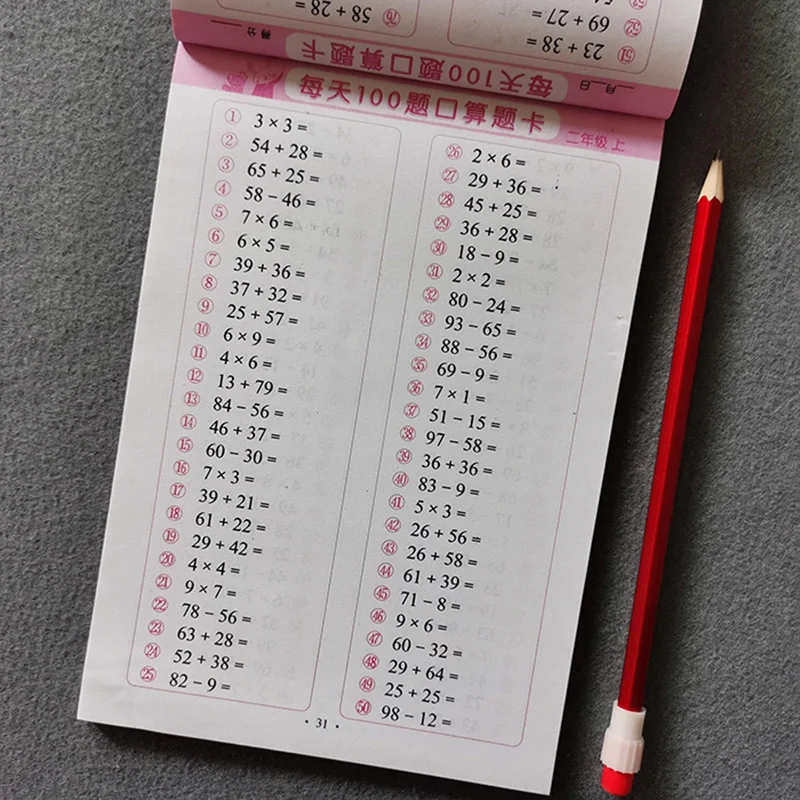 76 58 + 28 =
52 69 + 27 =
51 23 + 38 =
得分
每天100题口算题卡
月 日
每天100题口算题卡
二年级 上
① 3 × 3 =
② 54 + 28 =
③ 65 + 25 =
④ 58 − 46 =
⑤ 7 × 6 =
⑥ 6 × 5 =
⑦ 39 + 36 =
⑧ 37 + 32 =
⑨ 25 + 57 =
⑩ 6 × 9 =
⑪ 4 × 6 =
⑫ 13 + 79 =
⑬ 84 − 56 =
⑭ 46 + 37 =
⑮ 60 − 30 =
⑯ 7 × 3 =
⑰ 39 + 21 =
⑱ 61 + 22 =
⑲ 29 + 42 =
⑳ 4 × 4 =
㉑ 9 × 7 =
㉒ 78 − 56 =
㉓ 63 + 28 =
㉔ 52 + 38 =
㉕ 82 − 9 =
㉖ 2 × 6 =
㉗ 29 + 36 =
㉘ 45 + 25 =
㉙ 36 + 28 =
㉚ 18 − 9 =
㉛ 2 × 2 =
㉜ 80 − 24 =
㉝ 93 − 65 =
㉞ 88 − 56 =
㉟ 69 − 9 =
㊱ 7 × 1 =
㊲ 51 − 15 =
㊳ 97 − 58 =
㊴ 36 + 36 =
㊵ 83 − 9 =
㊶ 5 × 3 =
㊷ 26 + 56 =
㊸ 26 + 58 =
㊹ 61 + 39 =
㊺ 71 − 8 =
㊻ 9 × 6 =
㊼ 60 − 32 =
㊽ 29 + 64 =
㊾ 25 + 25 =
㊿ 98 − 12 =
· 31 ·